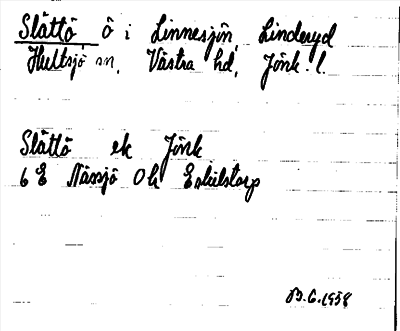 Slättö ö i Linnesjön, Linderyd
Hultsjö sn. Västra hd, Jönk. l.
Slättö ek Jönk
6 E Nässjö Oh Eskilstorp
B.G. 1958